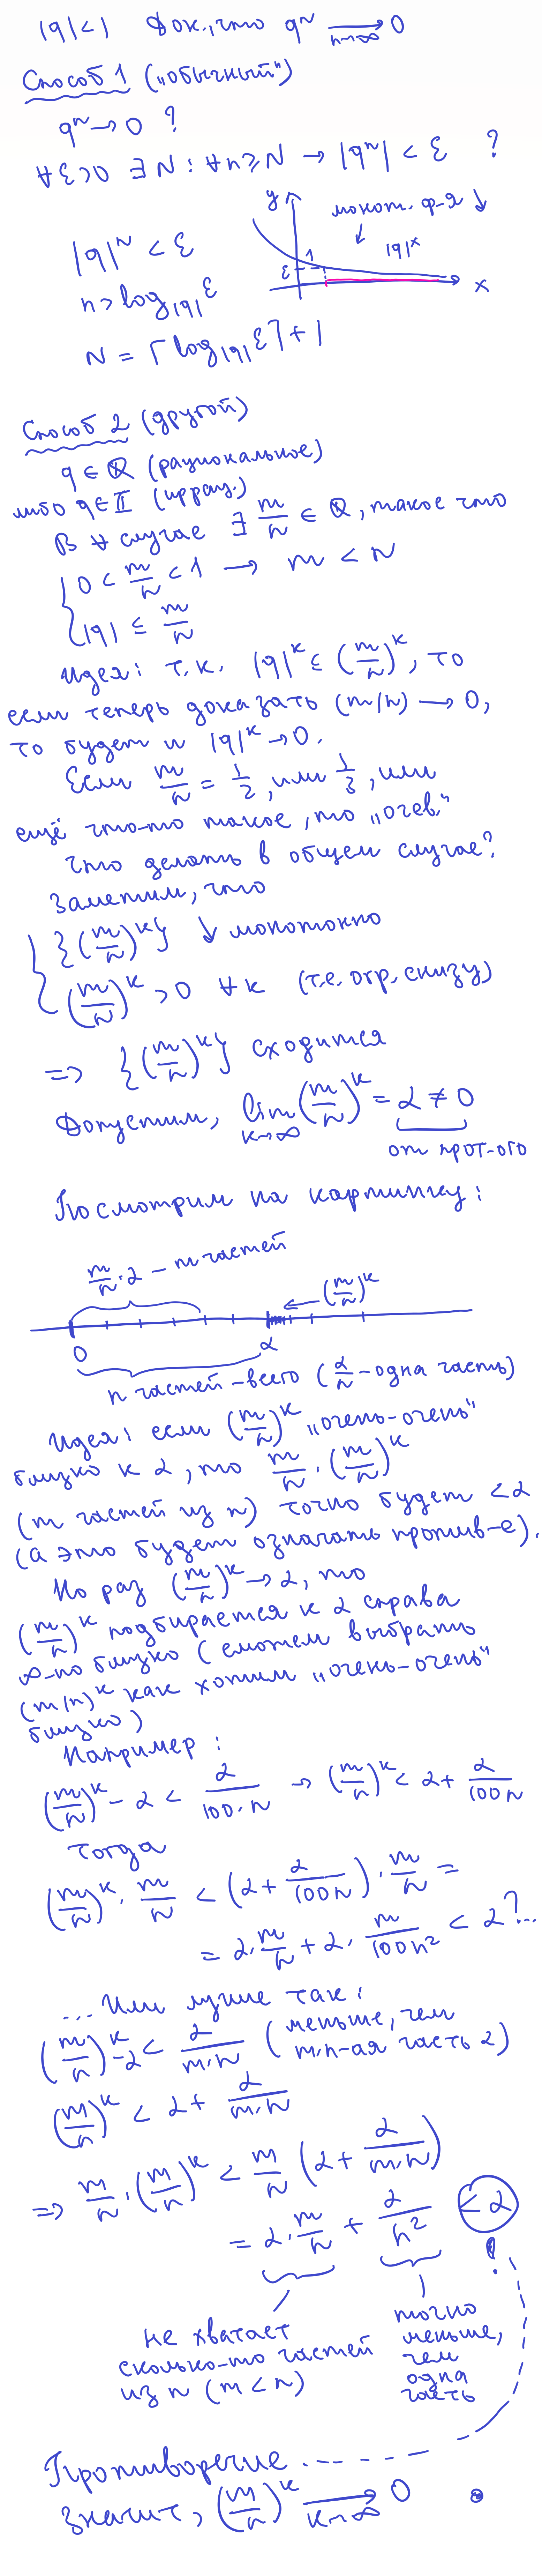 |q|<1 Док., что qⁿ → 0
n→∞
Способ 1 („обычный“)
qⁿ → 0 ?
∀ε>0 ∃N: ∀n≥N → |qⁿ| < ε ?
y монот. ф-я ↓
|q|ⁿ < ε
1 |q|ˣ
ε
x
n > log_|q| ε
N = ⌈log_|q| ε⌉ + 1
Способ 2 (другой)
q ∈ ℚ (рациональное)
либо q ∈ 𝕀 (иррац.)
В ∀ случае ∃ m/n ∈ ℚ, такое что
{ 0 < m/n < 1 → m < n
|q| ≤ m/n
Идея: т.к. |q|ᵏ ≤ (m/n)ᵏ, то
если теперь доказать (m/n) → 0,
то будет и |q|ᵏ → 0.
Если m/n = 1/2, или 1/3, или
ещё что-то такое, то „очев.“
Что делать в общем случае?
Заметим, что
{ {(m/n)ᵏ} ↓ монотонно
(m/n)ᵏ > 0 ∀k (т.е. огр. снизу)
=> {(m/n)ᵏ} сходится
Допустим, lim (m/n)ᵏ = α ≠ 0
k→∞
от прот-ого
Посмотрим на картинку:
m/n · α – m частей
(m/n)ᵏ
0 α
n частей – всего (α/n – одна часть)
Идея: если (m/n)ᵏ „очень-очень“
близко к α, то m/n · (m/n)ᵏ
(m частей из n) точно будет < α
(а это будет означать против-е).
Но раз (m/n)ᵏ → α, то
(m/n)ᵏ подбирается к α справа
∞-но близко (сможем выбрать
(m/n)ᵏ как хотим „очень-очень“
близко)
Например:
(m/n)ᵏ - α < α/(100·n) → (m/n)ᵏ < α + α/(100n)
тогда
(m/n)ᵏ · m/n < (α + α/(100n)) · m/n =
= α · m/n + α · m/(100n²) < α ?...
...Или лучше так:
(m/n)ᵏ - α < α/(m·n) (меньше, чем
m·n-ая часть α)
(m/n)ᵏ < α + α/(m·n)
=> m/n · (m/n)ᵏ < m/n (α + α/(m·n))
= α · m/n + α/n² < α
!
не хватает
сколько-то частей
из n (m < n)
точно
меньше,
чем
одна
часть
Противоречие
значит, (m/n)ᵏ → 0
k→∞